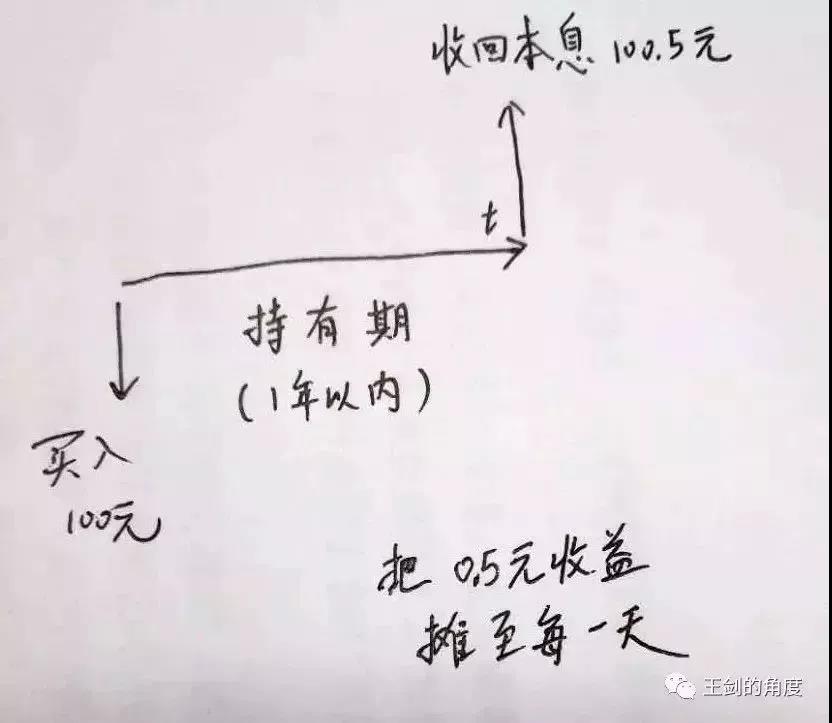 收回本息 100.5元
t
持有期
(1年以内)
买入
100元
把 0.5元收益
摊至每一天
王剑的角度